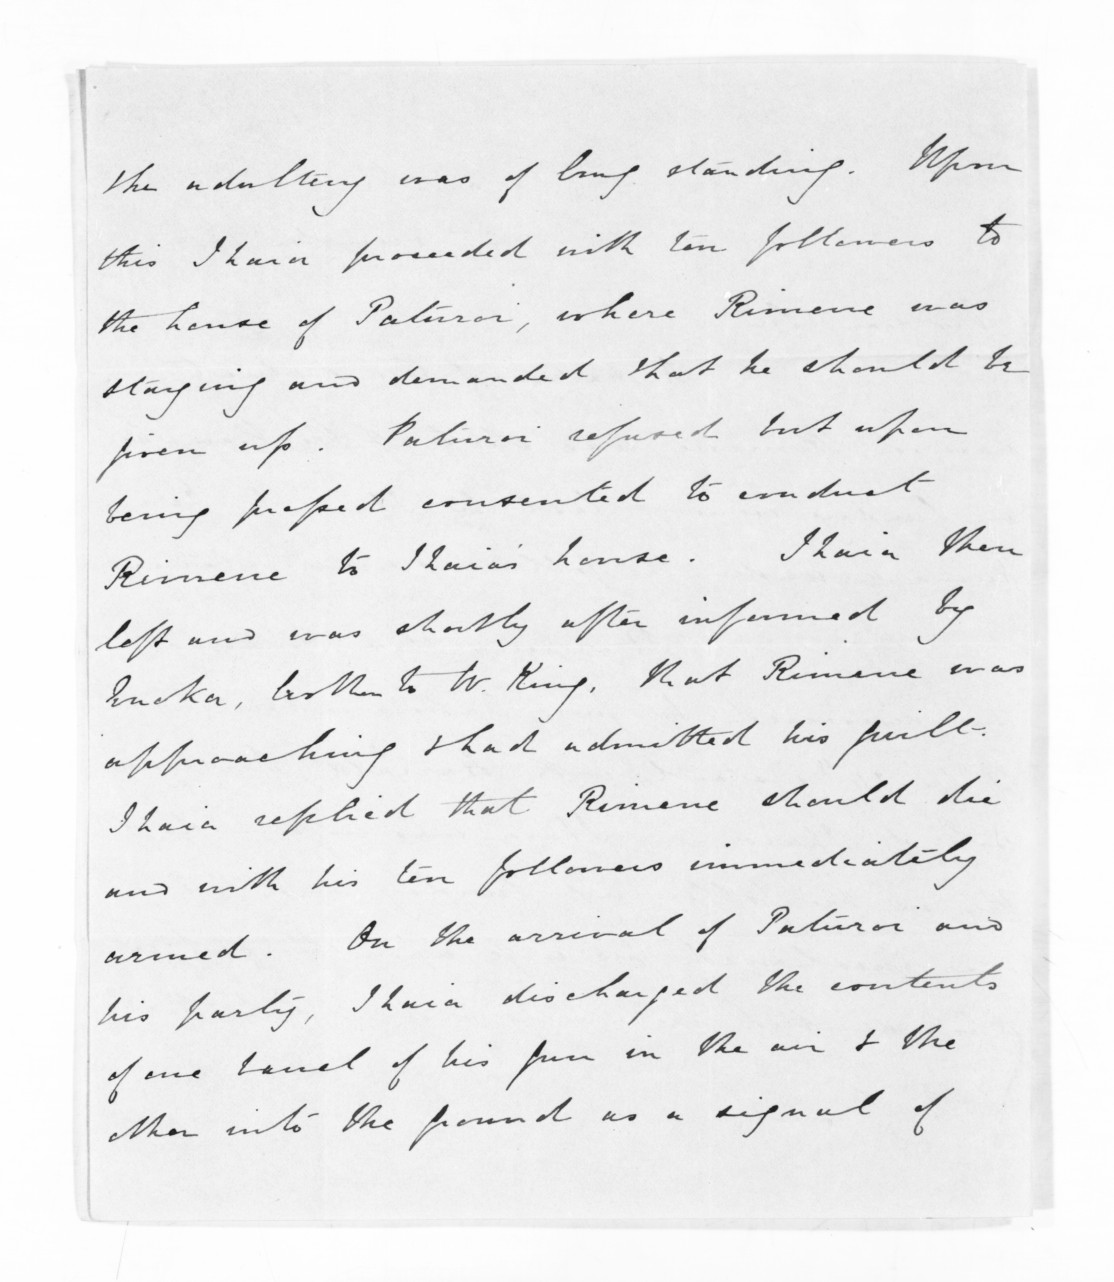 the adultery was of long standing. Upon
this Ihaia proceeded with ten followers to
the house of Paturoi, where Rimene was
staying and demanded that he should be
given up. Paturoi refused but upon
being pressed consented to conduct
Rimene to Ihaia's house. Ihaia then
left and was shortly after informed by
Enoka, brother to W. King, that Rimene was
approaching & had admitted his guilt.
Ihaia replied that Rimene should die
and with his ten followers immediately
armed. On the arrival of Paturoi and
his party, Ihaia discharged the contents
of one barrel of his gun in the air & the
other into the ground as a signal of